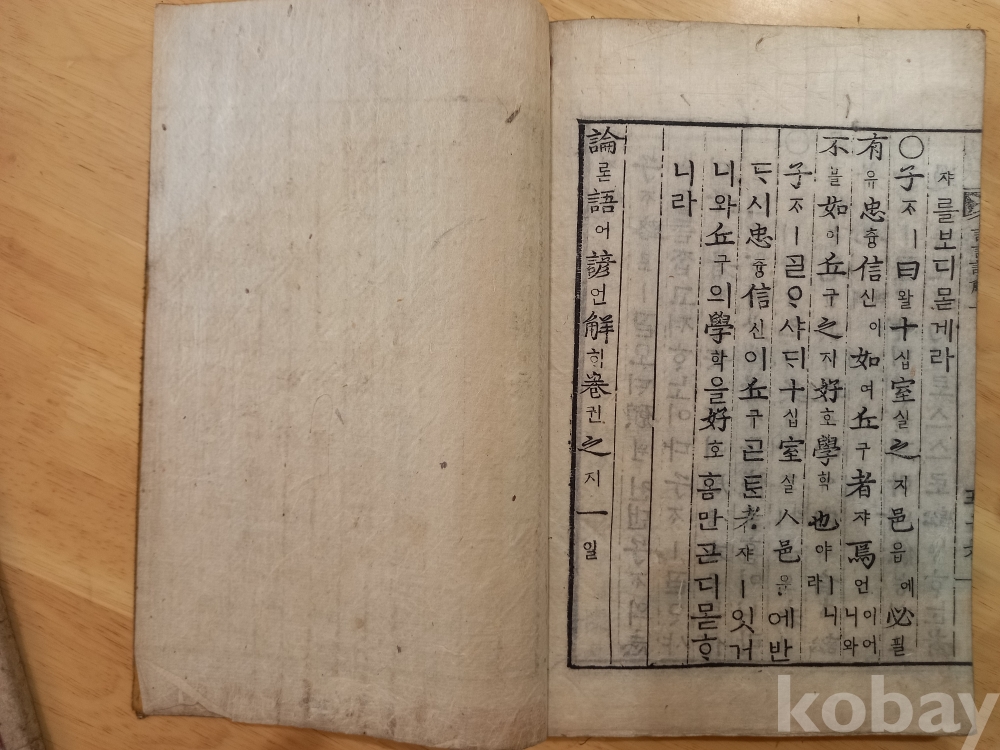 쟈를보디몯게라
○子ᄌᆞㅣ曰왈十십室실之지邑읍에必필
有유忠튱信신이如여丘구者쟈焉언이어니와
不블如여丘구之지好호學ᄒᆞᆨ也야ㅣ니라
○子ᄌᆞㅣᄀᆞᆯᄋᆞ샤ᄃᆡ十십室실人邑읍에반
ᄃᆞ시忠튱信신이丘구ᄀᆞᆮᄐᆞᆫ者쟈ㅣ잇거
니와丘구의學ᄒᆞᆨ을好호홈만ᄀᆞᆮ디몯ᄒᆞ
니라
論론語어諺언解ᄒᆡ卷권之지一일
kobay